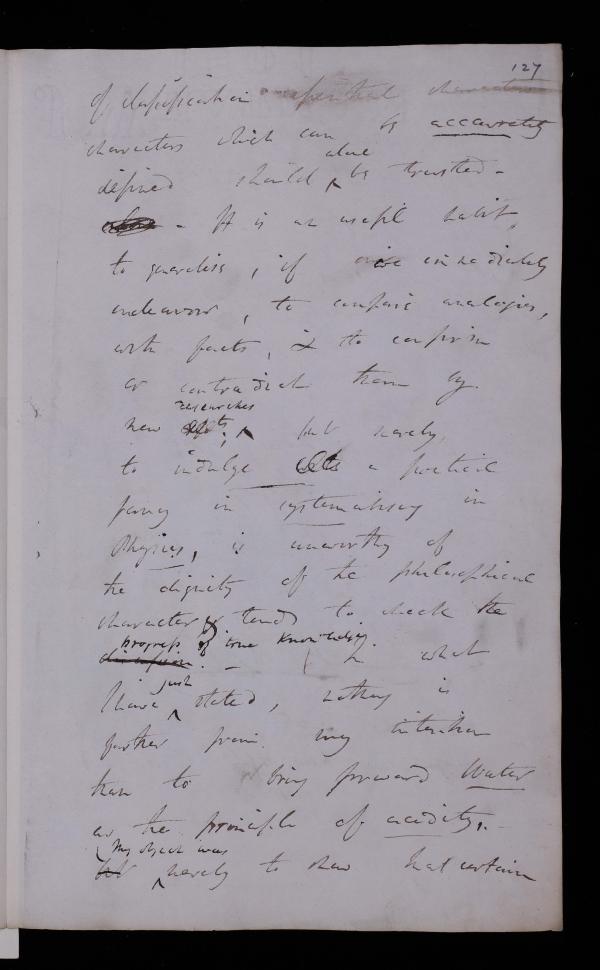 127
of classification essential characters
characters which can be accurately
alone
defined should ‸ be trusted -
- It is an useful habit,
to generalise, if we immediately
endeavour, to compare analogies,
with facts, & to confirm
or contradict them by
researches
new ; ‸ but merely,
to indulge a poetical
fancy in systematising in
Physics, is unworthy of
the dignity of the philosophical
character & tends to check the
progress of true knowledge.
diffusion. - In what
just
I have ‸ stated, nothing is
further from my intention
than to bring forward Water
as the principle of acidity. -
My object was
but ‸ merely to shew that certain